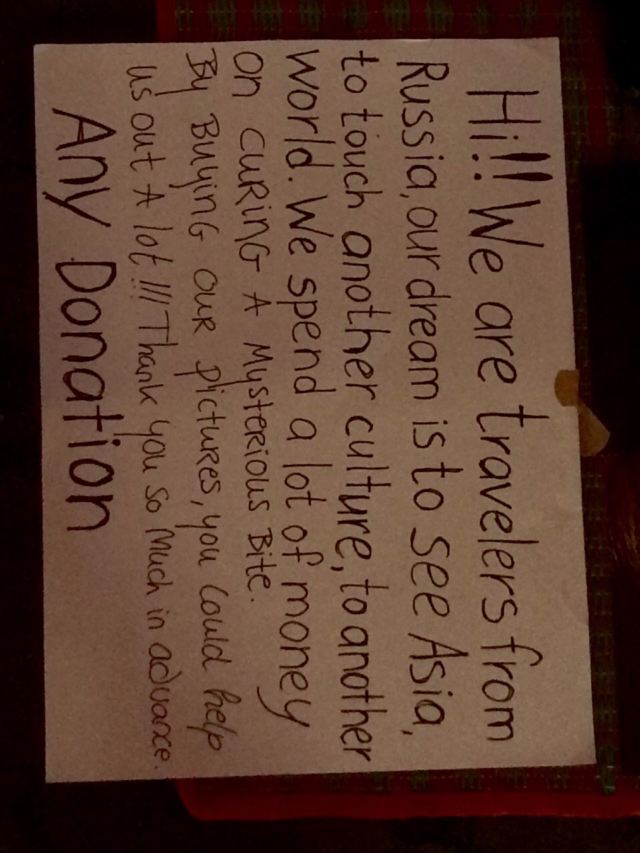 Hi!! We are travelers from
Russia, our dream is to see Asia,
to touch another culture, to another
world. We spend a lot of money
on curing A Mysterious Bite.
By Buying our pictures, you could help
us out A lot!!! Thank you so Much in advance.
Any Donation